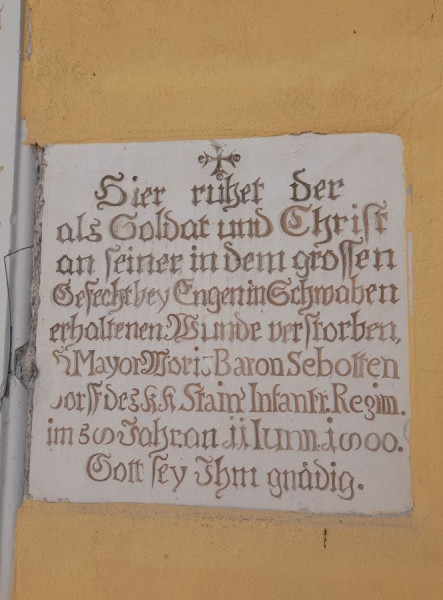 Hier ruhet der
als Soldat und Christ
an seiner in dem grossen
Gefecht bey Engen in Schwaben
erhaltenen Wunde verstorben,
Mayor Mori Baron Sebotten
dorff des KK Stain Infantr. Regim.
im Jahr an 11 Iuny 1800.
Gott sey Ihm gnädig.